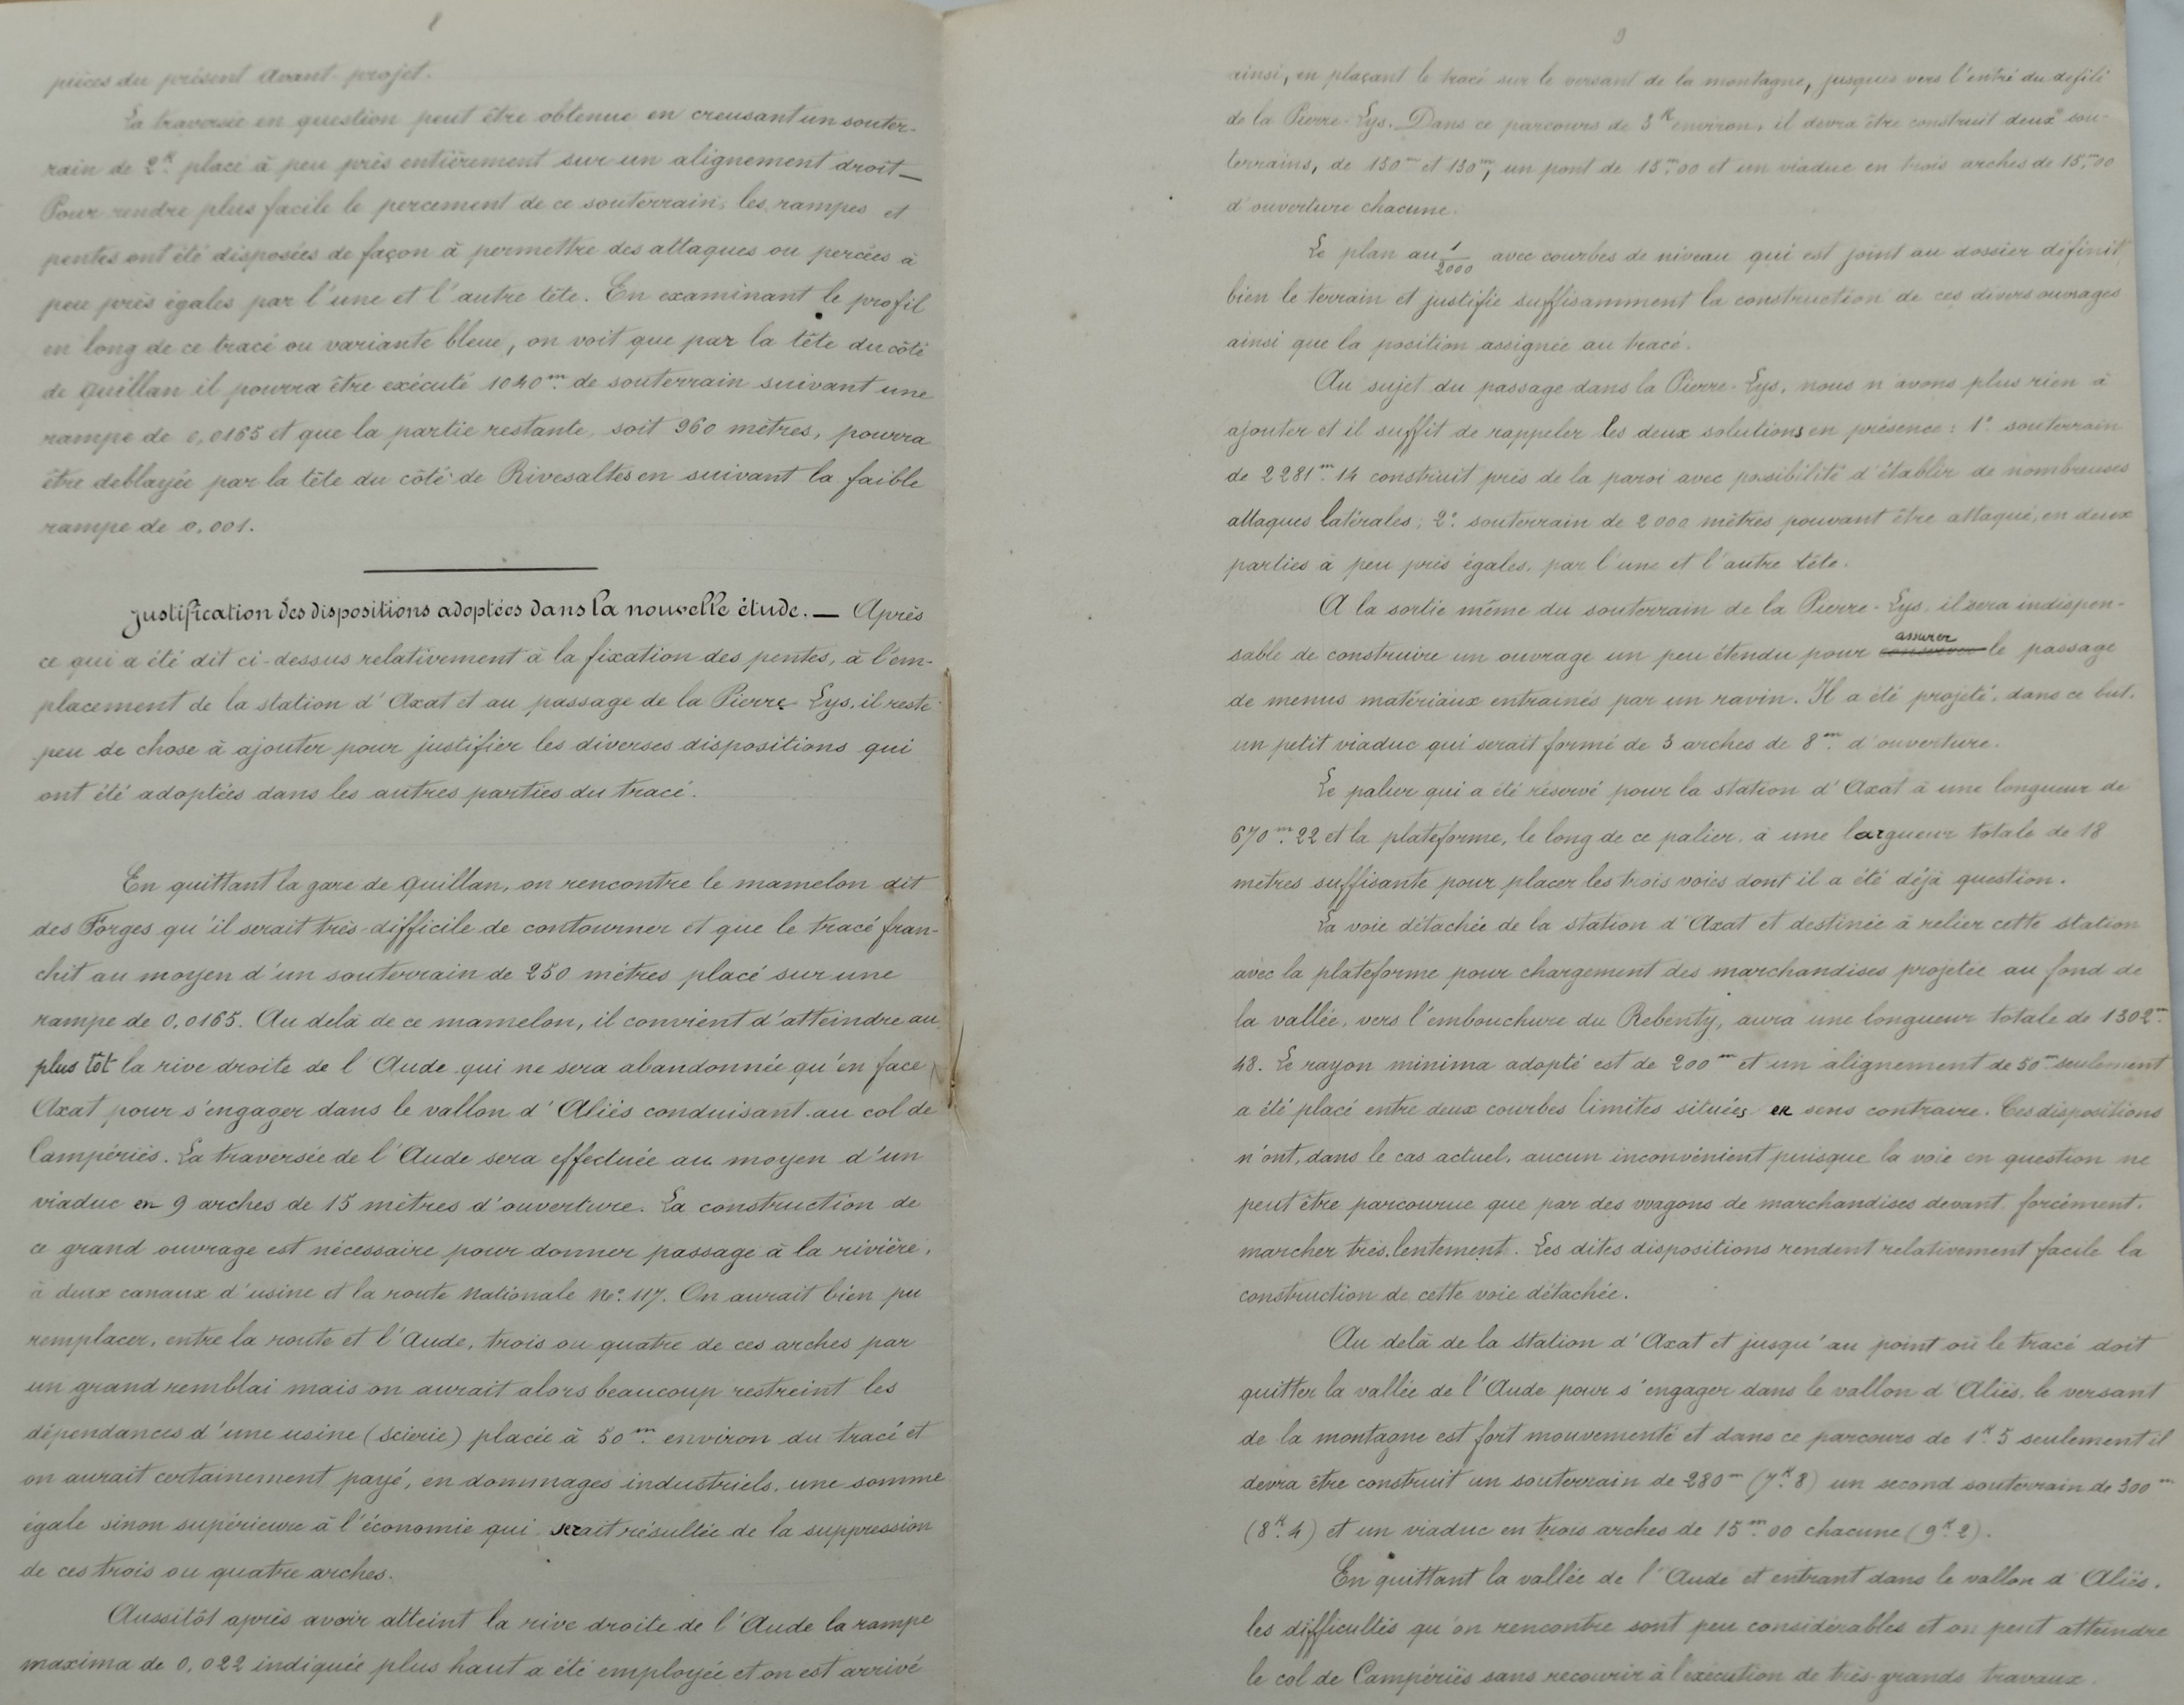 8
pièces du présent avant-projet.
La traversée en question peut être obtenue en creusant un souter-
rain de 2ᴷ placé à peu près entièrement sur un alignement droit_
Pour rendre plus facile le percement de ce souterrain, les rampes et
pentes ont été disposées de façon à permettre des attaques ou percées à
peu près égales par l'une et l'autre tête. En examinant le profil
en long de ce tracé ou variante bleue, on voit que par la tête du côté
de Quillan il pourra être exécuté 1040ᵐ. de souterrain suivant une
rampe de 0,0165 et que la partie restante, soit 960 mètres, pourra
être deblayée par la tête du côté de Rivesaltes en suivant la faible
rampe de 0,001.
Justification des dispositions adoptées dans la nouvelle étude. — Après
ce qui a été dit ci-dessus relativement à la fixation des pentes, à l'em-
placement de la station d'Axat et au passage de la Pierre-Lys, il reste
peu de chose à ajouter pour justifier les diverses dispositions qui
ont été adoptées dans les autres parties du tracé.
En quittant la gare de Quillan, on rencontre le mamelon dit
des Forges qu'il serait très-difficile de contourner et que le tracé fran-
chit au moyen d'un souterrain de 250 mètres placé sur une
rampe de 0,0165. Au delà de ce mamelon, il convient d'atteindre au
plus tôt la rive droite de l'Aude qui ne sera abandonnée qu'en face
Axat pour s'engager dans le vallon d'Aliès conduisant au col de
Campériès. La traversée de l'Aude sera effectuée au moyen d'un
viaduc en 9 arches de 15 mètres d'ouverture. La construction de
ce grand ouvrage est nécessaire pour donner passage à la rivière,
à deux canaux d'usine et la route Nationale Nº. 117. On aurait bien pu
remplacer, entre la route et l'Aude, trois ou quatre de ces arches par
un grand remblai mais on aurait alors beaucoup restreint les
dépendances d'une usine (scierie) placée à 50ᵐ. environ du tracé et
on aurait certainement payé, en dommages industriels, une somme
égale sinon supérieure à l'économie qui serait résultée de la suppression
de ces trois ou quatre arches.
Aussitôt après avoir atteint la rive droite de l'Aude la rampe
maxima de 0,022 indiquée plus haut a été employée et on est arrivé
9
ainsi, en plaçant le tracé sur le versant de la montagne, jusques vers l'entré du defilé
de la Pierre-Lys. Dans ce parcours de 3ᴷ environ, il devra être construit deux sou-
terrains, de 150ᵐ et 130ᵐ, un pont de 15ᵐ.00 et un viaduc en trois arches de 15ᵐ.00
d'ouverture chacune.
Le plan au 1/2000 avec courbes de niveau qui est joint au dossier définit
bien le terrain et justifie suffisamment la construction de ces divers ouvrages
ainsi que la position assignée au tracé.
Au sujet du passage dans la Pierre-Lys, nous n'avons plus rien à
ajouter et il suffit de rappeler les deux solutions en présence : 1º. souterrain
de 2281ᵐ.14 construit près de la paroi avec possibilité d'établir de nombreuses
attaques latérales; 2º. souterrain de 2000 mètres pouvant être attaqué, en deux
parties à peu près égales, par l'une et l'autre tête.
A la sortie même du souterrain de la Pierre-Lys, il sera indispen-
sable de construire un ouvrage un peu étendu pour assurer le passage
de menus matériaux entrainés par un ravin. Il a été projeté, dans ce but,
un petit viaduc qui serait formé de 3 arches de 8ᵐ. d'ouverture.
Le palier qui a été réservé pour la station d'Axat à une longueur de
670ᵐ.22 et la plateforme, le long de ce palier, à une largueur totale de 18
mètres suffisante pour placer les trois voies dont il a été déjà question.
La voie détachée de la station d'Axat et destinée à relier cette station
avec la plateforme pour chargement des marchandises projetée au fond de
la vallée, vers l'embouchure du Rebenty, aura une longueur totale de 1302ᵐ.
48. Le rayon minima adopté est de 200ᵐ et un alignement de 50ᵐ seulement
a été placé entre deux courbes limites situées en sens contraire. Ces dispositions
n'ont, dans le cas actuel, aucun inconvénient puisque la voie en question ne
peut être parcourue que par des wagons de marchandises devant, forcément,
marcher très lentement. Les dites dispositions rendent relativement facile la
construction de cette voie détachée.
Au delà de la station d'Axat et jusqu'au point où le tracé doit
quitter la vallée de l'Aude pour s'engager dans le vallon d'Aliès, le versant
de la montagne est fort mouvementé et dans ce parcours de 1ᴷ.5 seulement il
devra être construit un souterrain de 280ᵐ (7ᴷ.8) un second souterrain de 300ᵐ
(8ᴷ.4) et un viaduc en trois arches de 15ᵐ.00 chacune (9ᴷ.2).
En quittant la vallée de l'Aude et entrant dans le vallon d'Aliès,
les difficultés qu'on rencontre sont peu considérables et on peut atteindre
le col de Campériès sans recourir à l'exécution de très-grands travaux.